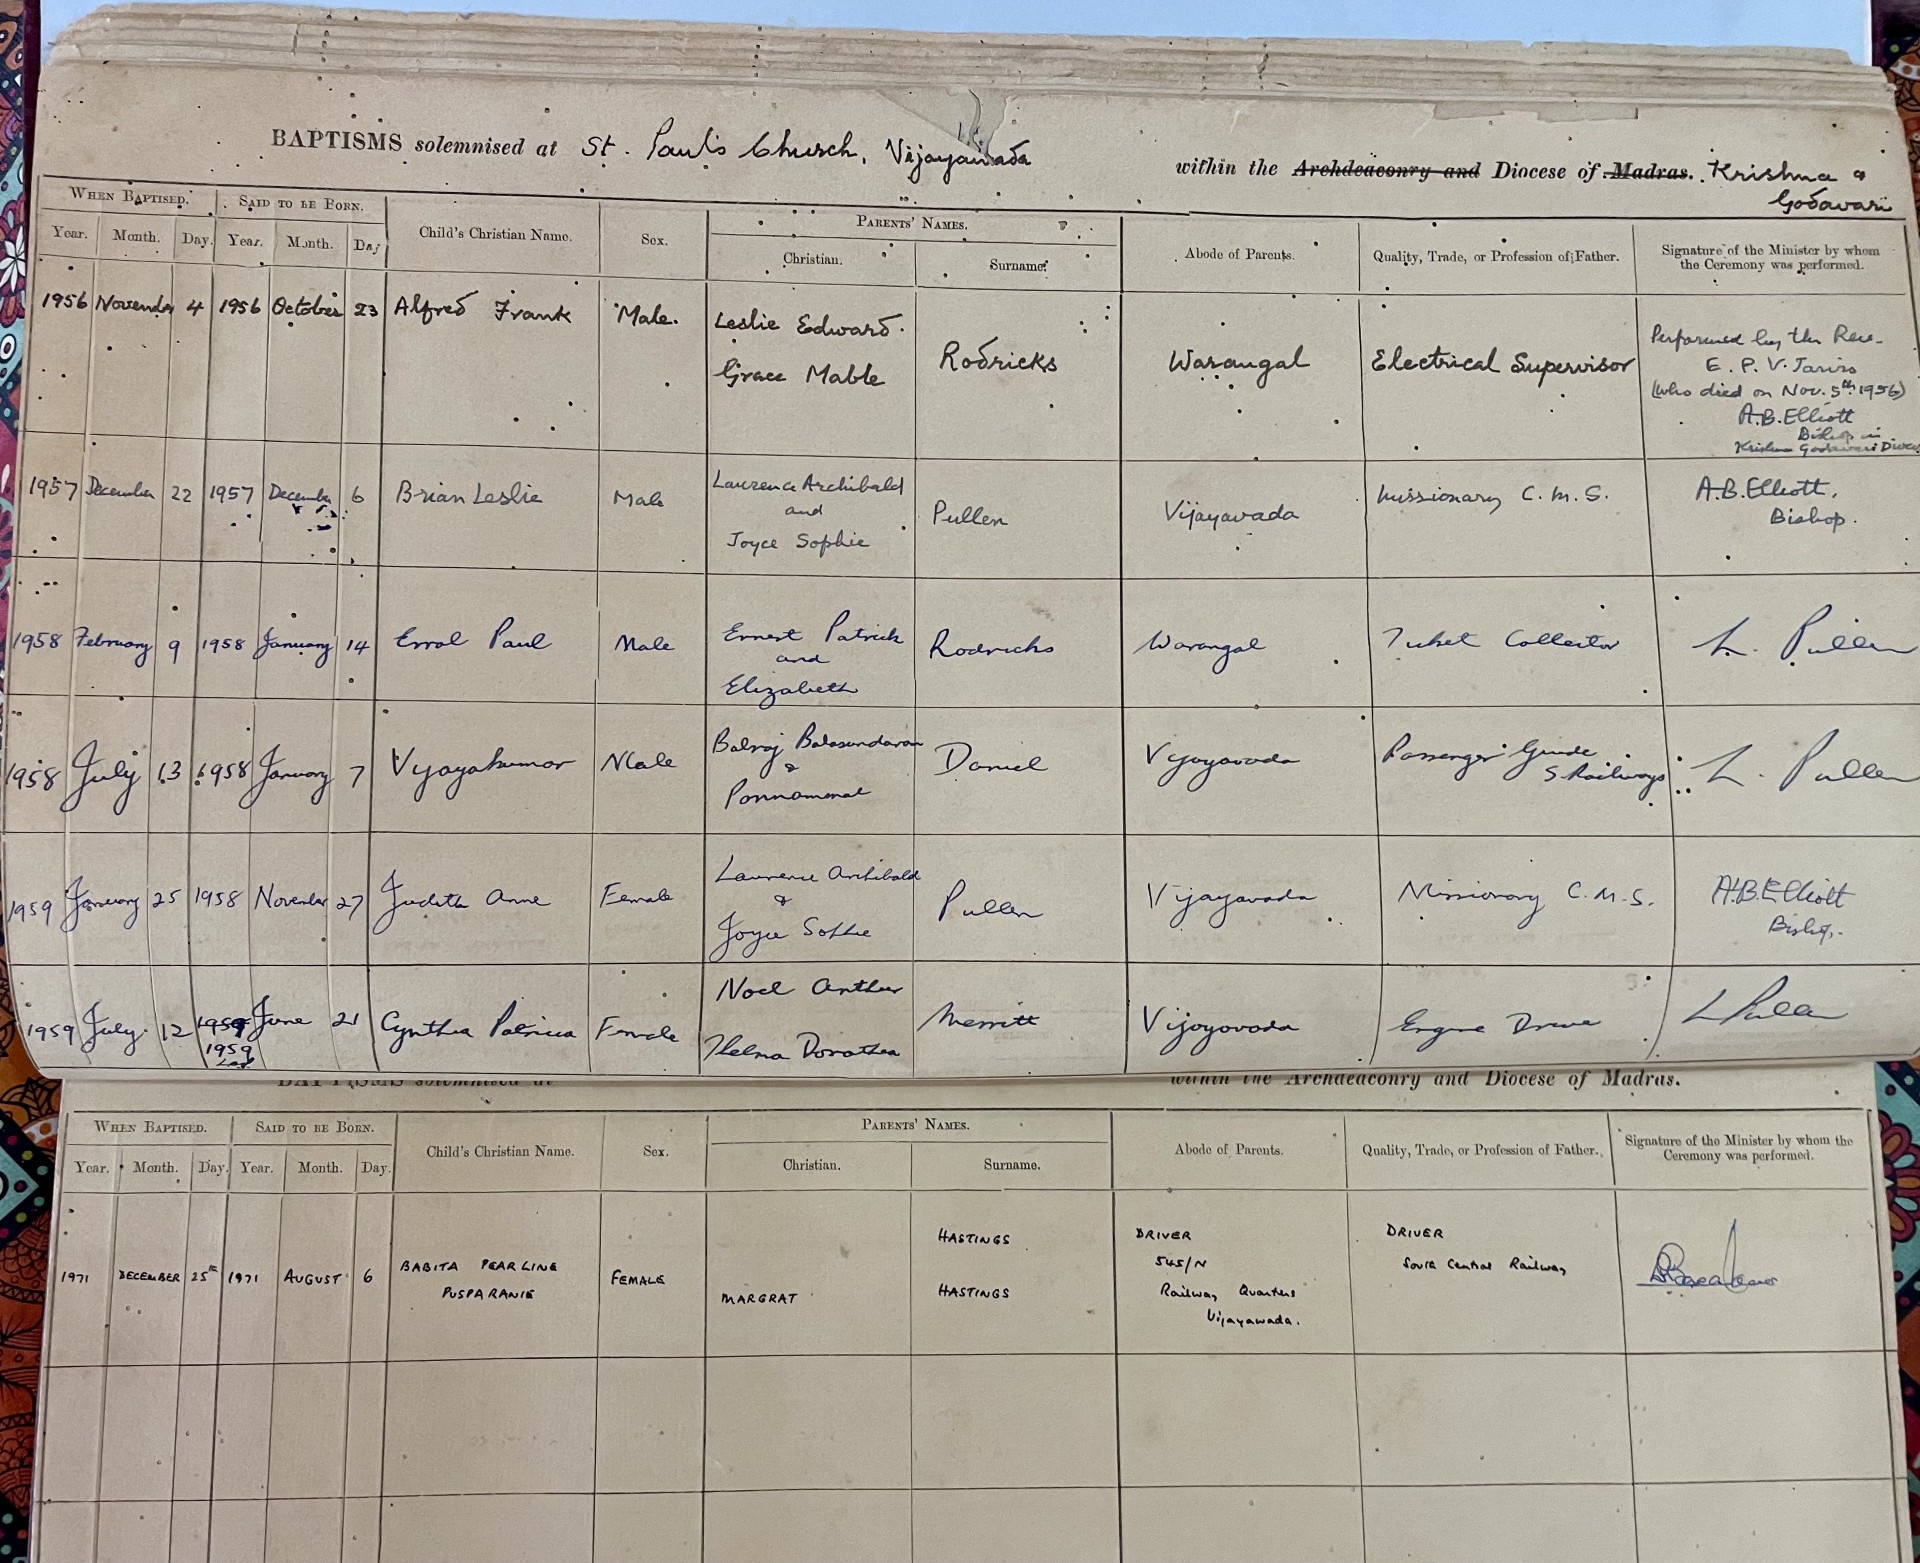 BAPTISMS solemnised at St. Paul's Church, Vijayawada within the Archdeaconry and Diocese of Madras. Krishna &
Godavari
WHEN BAPTISED. SAID TO BE BORN. Child's Christian Name. Sex. PARENTS' NAMES. Abode of Parents. Quality, Trade, or Profession of Father. Signature of the Minister by whom
the Ceremony was performed.
Year. Month. Day. Year. Month. Day Christian. Surname.
1956 November 4 1956 October 23 Alfred Frank Male. Leslie Edward.
Grace Mable Rodricks Warangal Electrical Supervisor Performed by the Rev.
E. P. V.
(who died on Nov. 5th 1956)
A.B. Elliott
Bishop in
Krishna Godavari
1957 December 22 1957 December 6 Brian Leslie Male Laurence Archibald
and
Joyce Sophie Pullen Vijayavada Missionary C.M.S. A.B. Elliott,
Bishop.
1958 February 9 1958 January 14 Errol Paul Male Ernest Patrick
and
Elizabeth Rodricks Warangal Ticket Collector L. Pullen
1958 July 13 1958 January 7 Vijayakumar Male Balraj Balasundaram
&
Daniel Vijayavada Passenger Guide
S. Railways L. Pullen
1959 January 25 1958 November 27 Judith Anne Female Laurence Archibald
&
Joyce Sophie Pullen Vijayavada Missionary C.M.S. A.B. Elliott
Bishop.
1959 July 12 1959 June 21 Cynthia Patricia Female Noel Arthur
1959
Thelma Dorothea Merritt Vijayavada Engine Driver L Pullen
BAPTISMS solemnised at within the Archdeaconry and Diocese of Madras.
WHEN BAPTISED. SAID TO BE BORN. Child's Christian Name. Sex. PARENTS' NAMES. Abode of Parents. Quality, Trade, or Profession of Father. Signature of the Minister by whom the
Ceremony was performed.
Year. Month. Day. Year. Month. Day. Christian. Surname.
1971 DECEMBER 25th 1971 AUGUST 6 BABITA PEARLINE
PUSPARANIE FEMALE HASTINGS
MARGRAT HASTINGS
DRIVER
545/N
Railway Quarters
Vijayawada.
DRIVER
South Central Railway